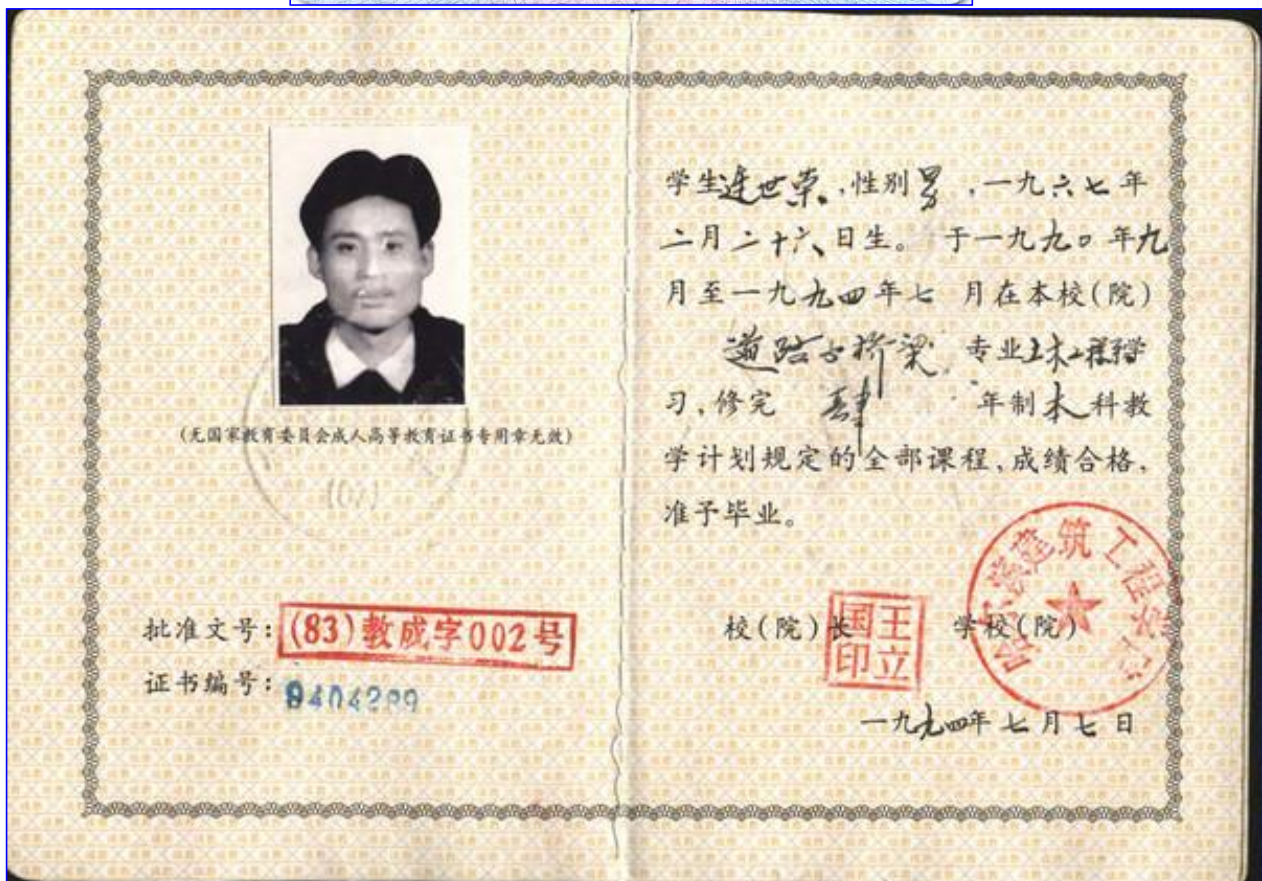 (无国家教育委员会成人高等教育证书专用章无效)
(07)
批准文号：(83)教成字002号
证书编号：9404289
学生连世荣，性别男，一九六七年
二月二十六日生。于一九九〇年九
月至一九九四年七月在本校(院)
道路与桥梁 专业土木工程学
习，修完 肆 年制本科教
学计划规定的全部课程，成绩合格，
准予毕业。
哈尔滨建筑工程学院
校(院)长 王立国印 学校(院)
一九九四年七月七日